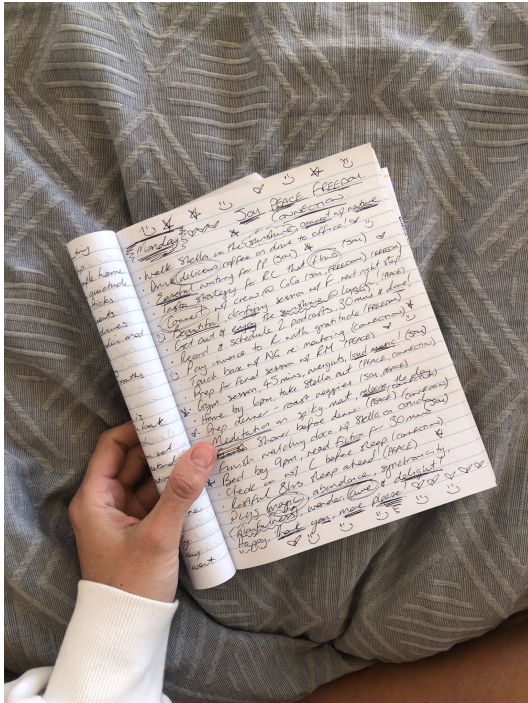 JOY PEACE FREEDOM
CONNECTION
Monday
Walk Stella in the sunshine, connect w/ nature
Drink delicious coffee on drive to office!
writing for PP (JOY)
Insta strategy for RC that flows (JOY)
Connect w/ crew @ CoCo (JOY, FREEDOM)
Beautiful, clarifying session w/ F next right step
Get out & enjoy the sunshine @ lunch! (PEACE)
Record & schedule 2 podcasts. 30mins & done!
Pay invoice to R with gratitude (FREEDOM)
Touch base w/ NG re: mentoring (CONNECTION)
Prep for final session w/ RM (PEACE)
Gym session, 45 mins, weights, loud music! (JOY)
Home by 6pm, take Stella out (PEACE, CONNECTION)
Prep dinner - roast veggies (JOY, PEACE)
Meditation on spiky mat, release the day
shower before dinner (PEACE)
Finish watching doco w/ Stella on couch (JOY)
Bed by 9pm, read fiction for 30 mins
Check in w/ L before sleep (CONNECTION)
Restful 8hrs sleep ahead! (PEACE)
PLUS magic, abundance, synchronicity,
playfulness, wonder, & delight!
Happy. Thank you, more please!